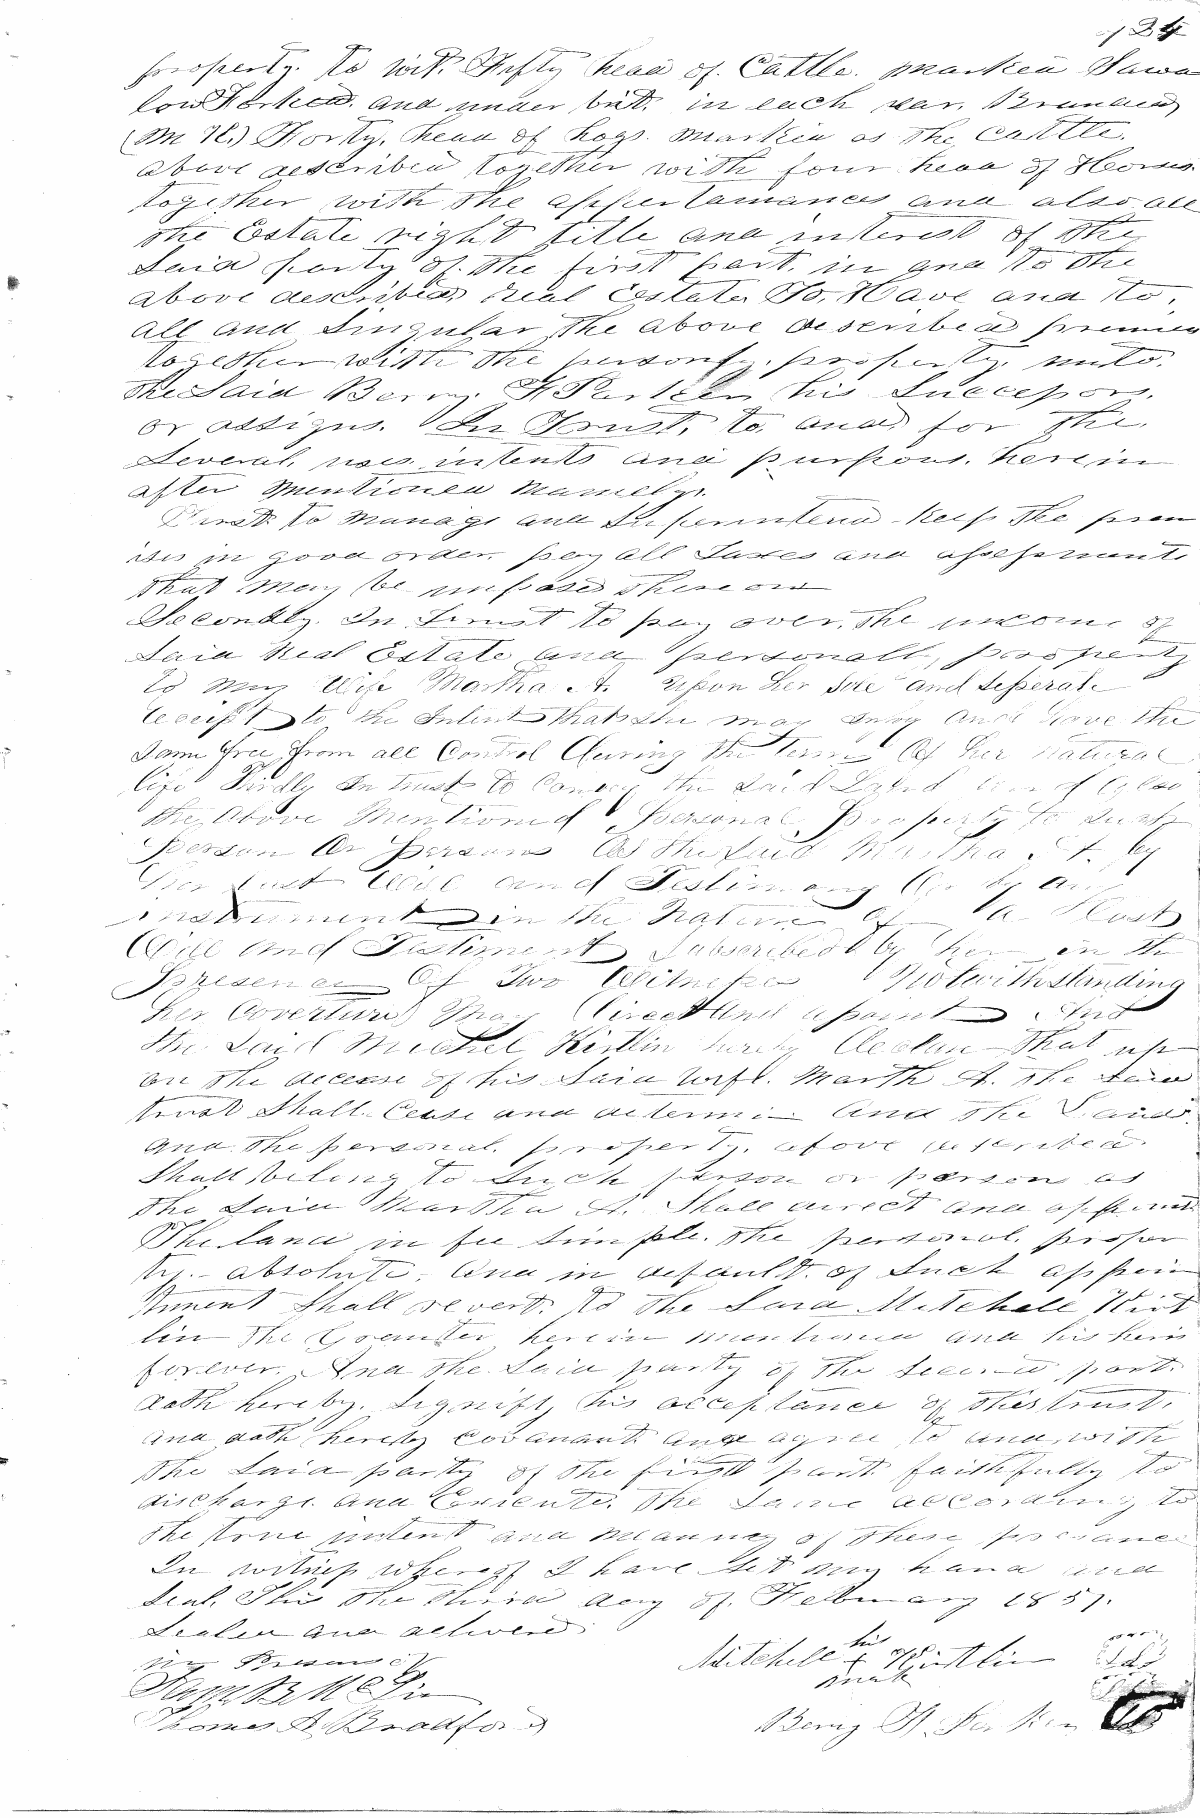 24
property. to wit. Fifty head of. Cattle. marked Swal
low Forked. and under bit. in each ear. Branded
(M K.) Forty. head of hogs. marked as the Cattle.
above described together with four head of Horses.
together with the appertanances and also all
the Estate right title and interest of the
Said party of. the first part. in and to the
above described real Estate To. Have and to.
all and Singular the above described premises
together with the personly. property. unto.
the Said Berry. H Parker his Successors.
or assigns. In Trust. to and for the.
Several. uses. intents and purposes. herein
after mentioned Namely.
First. to manage and Superintend Keep the prem
ises in good order. pay all Taxes and assessments
that may be imposed thereon
Secondly. In trust to pay over. the income of
Said Real Estate and personall, property
to my Wife Martha A. Upon her Sole and Seperate
receipt to the Intent that she may enjoy and have the
Same free from all Control during the Term of her natural
life Thirdly In trust to Convey the Said Land and Also
the above Mentioned Personal Property to such
Person Or Persons As the Said Martha A. by
her Last Will and Testimony Or by any
instrument in the Nature of a Last
Will and Testiment Subscribed by her in the
Presence Of Two Witnesses Notwithstanding
her Coverture May Direct And apoint And
the Said Michel Kirtlin hereby Declare That up
on the decease of his Said wife. Marth A. the Said
trust Shall. Cease and determin And the Land.
and the personal. property. above described
Shall belong to Such person or persons as
the Said Martha A. Shall direct and appoint
The land in fee Simple. the personal. proper
ty.- absolute. And in default. of Such appoin
tment Shall revert. to the Said Mitchell Kirt
lin the Granter herein mentioned and his heirs
forever. And the Said party of the Second part.
doth hereby. Signify his acceptance of this trust.
and doth hereby covanant and agree to and with
the Said party of the first part faithfully to
discharge and Execute. The Same according to
the true intent and meaning of these presance
In witness whereof I have Set my hand and
Seal. This the third day of. February 1857.
Sealed and delivered
in Presance of
his
Mitchell x Kirtlin
mark
Thomas A. Bradford
Berry H. Parker